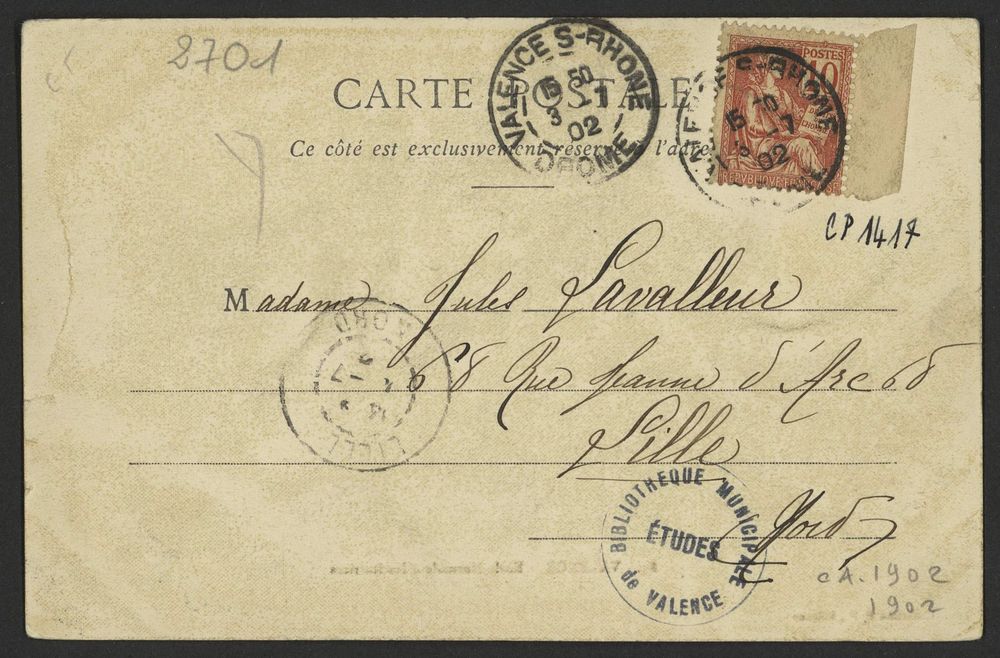 2701
CARTE POSTALE
Ce côté est exclusivement réservé à l'adre
VALENCE S-RHONE
15 50
3 -7
02
DROME
POSTES
10
REPUBLIQUE FRANCAISE
VALENCE S-RHONE
15 50
3 -7
02
DROME
CP 1417
Madame Jules Lavalleur
68 Rue Jeanne d'Arc 68
Lille
(Nord)
LILLE
NORD
BIBLIOTHEQUE MUNICIPALE
ÉTUDES
de VALENCE
CA. 1902
1902